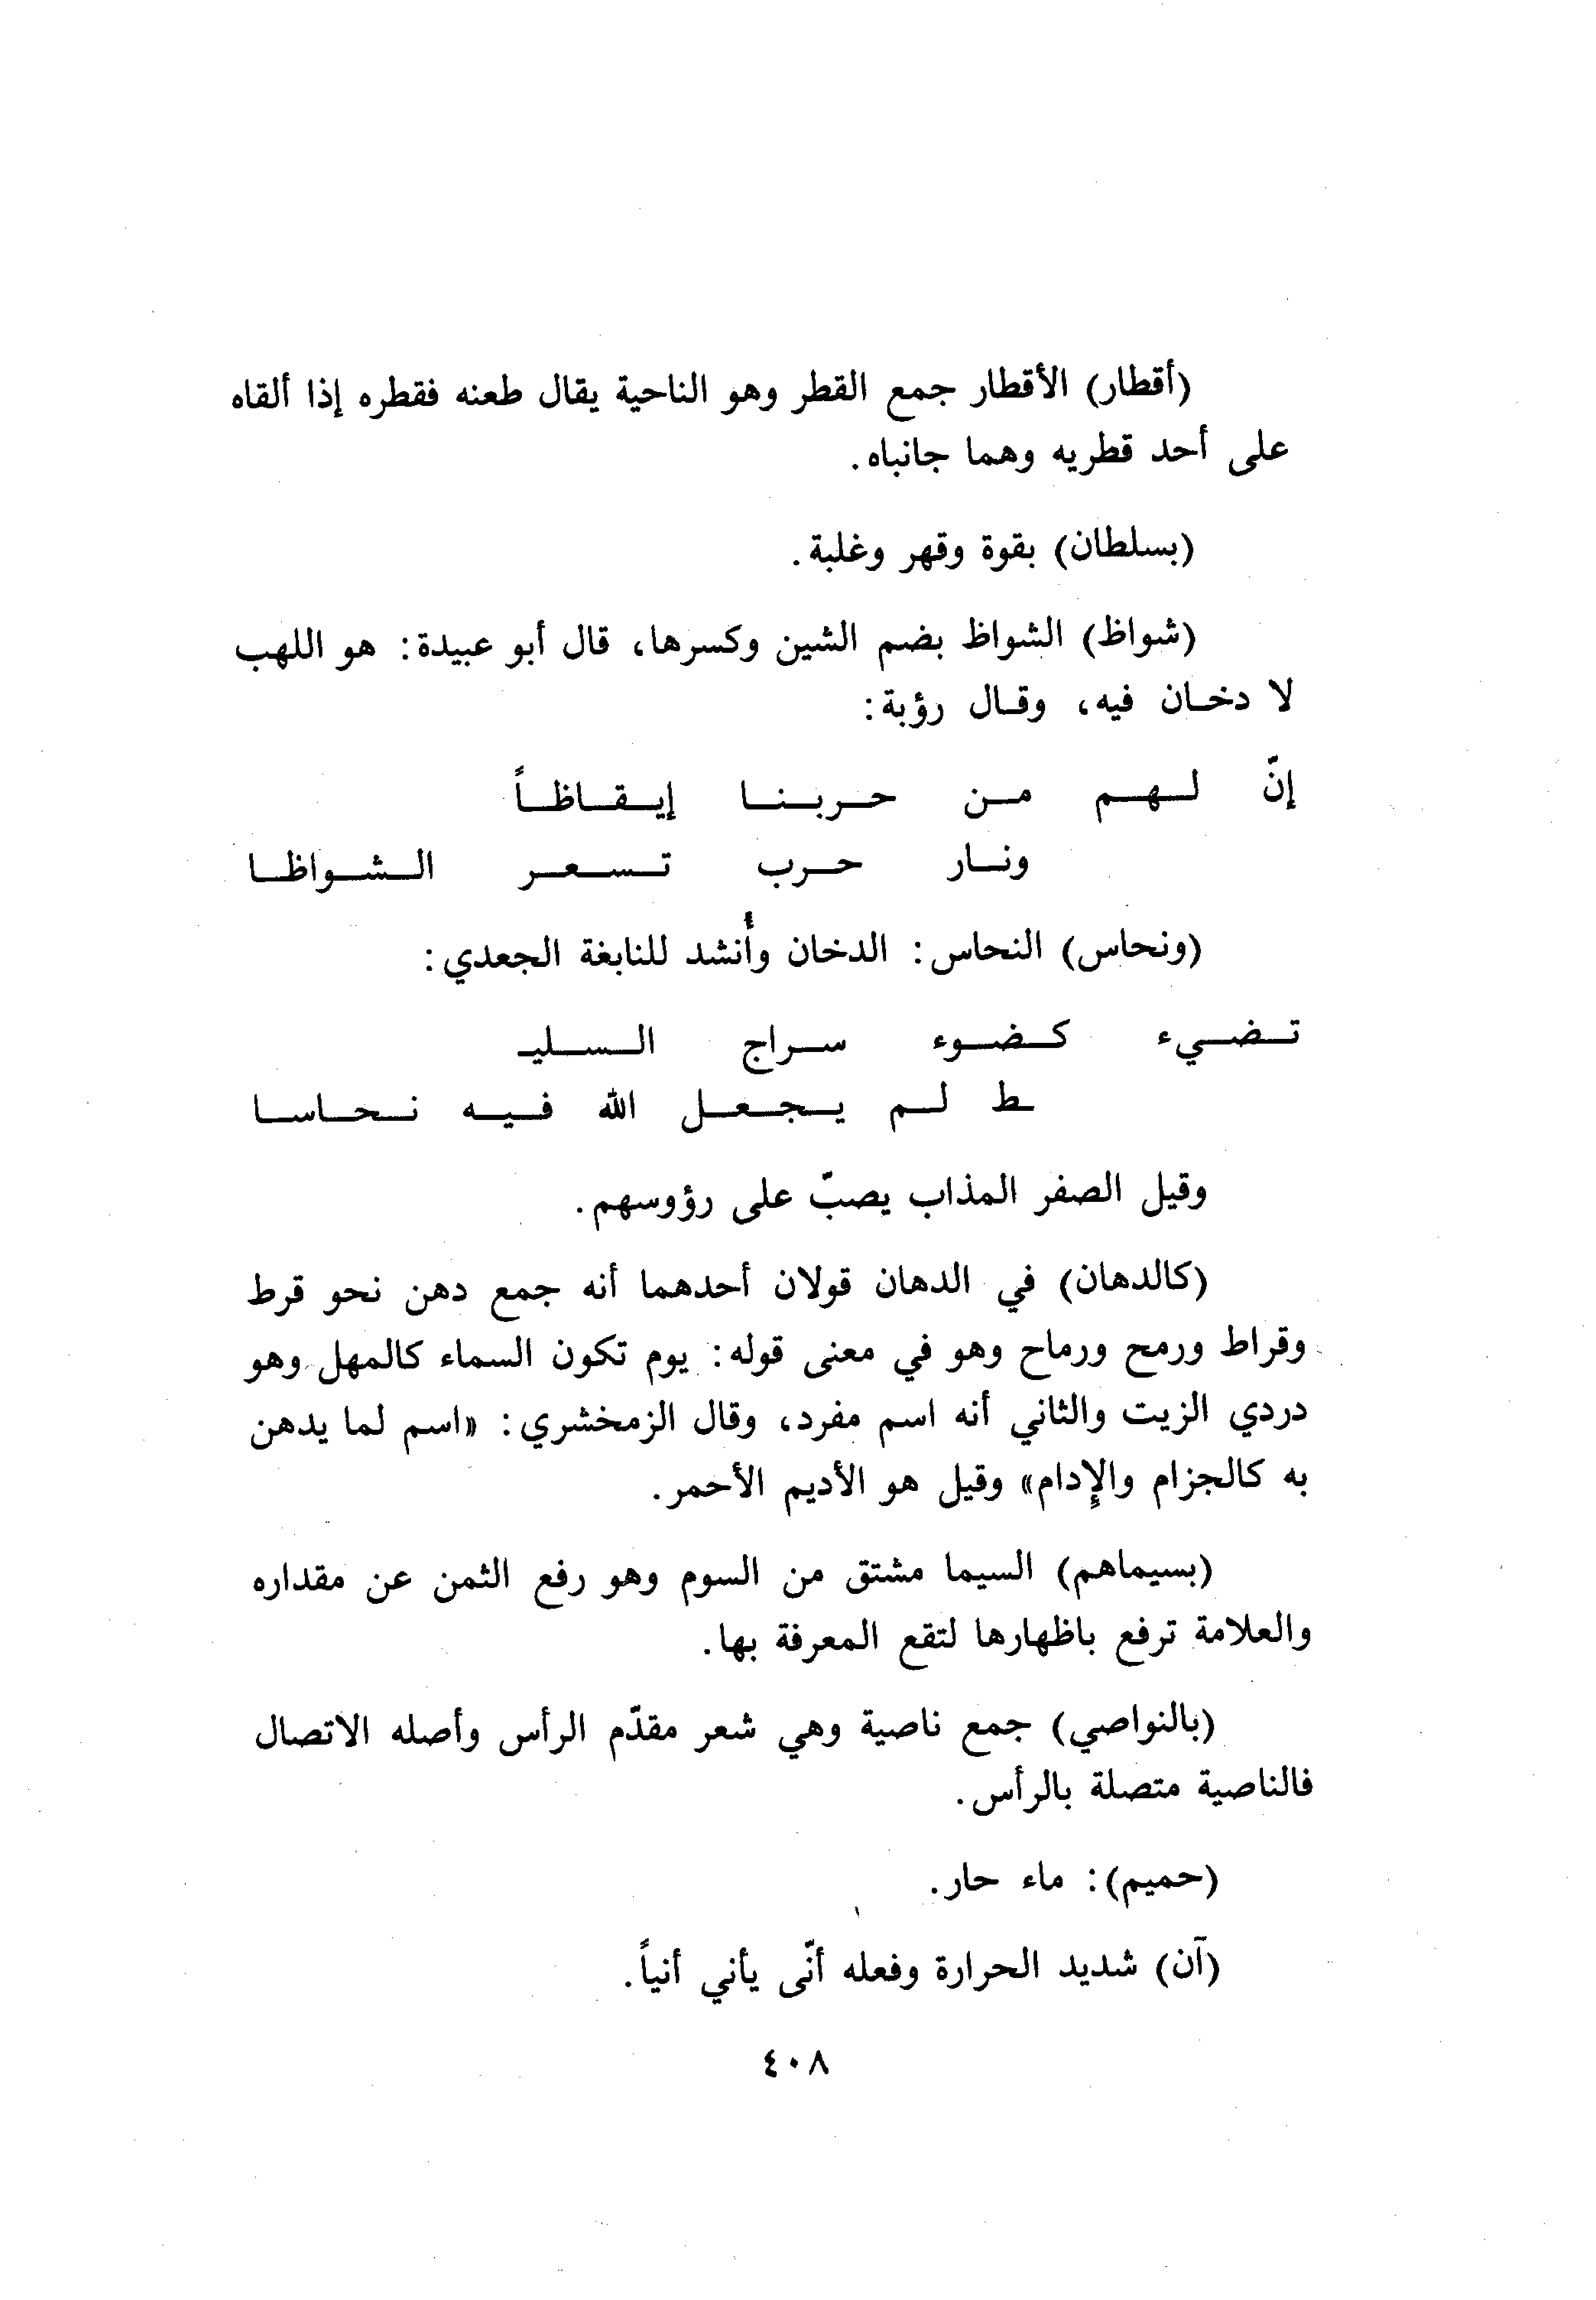 (أقطار) الأقطار جمع القطر وهو الناحية يقال طعنه فقطره إذا ألقاه
على أحد قطريه وهما جانباه.
(بسلطان) بقوة وقهر وغلبة.
(شواظ) الشواظ بضم الشين وكسرها، قال أبو عبيدة: هو اللهب
لا دخان فيه، وقال رؤبة:
إنّ لهم من حربنا إيقاظاً
ونار حرب تسعر الشواظا
(ونحاس) النحاس: الدخان وأُنشد للنابغة الجعدي:
تضيء كضوء سراج السليـ
ـط لم يجعل الله فيه نحاسا
وقيل الصفر المذاب يصبّ على رؤوسهم.
(كالدهان) في الدهان قولان أحدهما أنه جمع دهن نحو قرط
وقراط ورمح ورماح وهو في معنى قوله: يوم تكون السماء كالمهل وهو
دردي الزيت والثاني أنه اسم مفرد، وقال الزمخشري: «اسم لما يدهن
به كالجزام والإدام» وقيل هو الأديم الأحمر.
(بسيماهم) السيما مشتق من السوم وهو رفع الثمن عن مقداره
والعلامة ترفع باظهارها لتقع المعرفة بها.
(بالنواصي) جمع ناصية وهي شعر مقدّم الرأس وأصله الاتصال
فالناصية متصلة بالرأس.
(حميم): ماء حار.
(آن) شديد الحرارة وفعله أنّى يأني أنياً.
٤٠٨